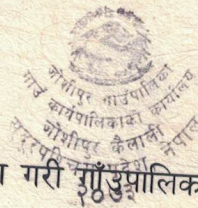 जोशीपुर गाउँपालिका
गाउँ कार्यपालिकाको कार्यालय
जोशीपुर कैलाली
सुदूरपश्चिम प्रदेश नेपाल
२०७३
गरी गाँउपालिक